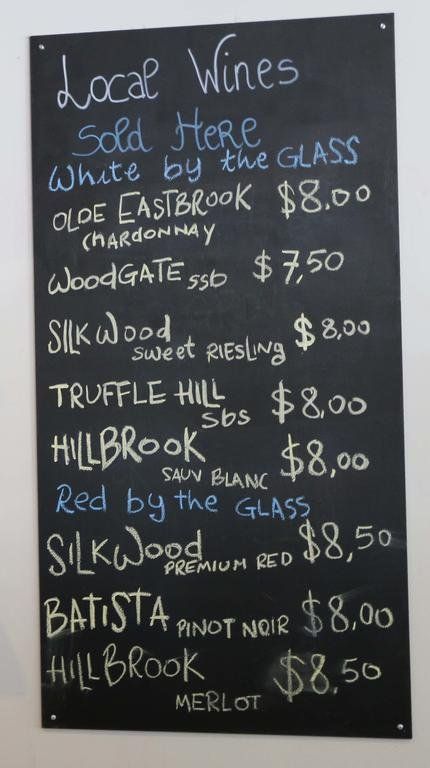 Local Wines
Sold Here
White by the GLASS
OLDE EASTBROOK $8.00
CHARDONNAY
WOODGATE ssb $7,50
SILKWOOD $8,00
sweet RIESLING
TRUFFLE HILL $8,00
SBS
HILLBROOK $8,00
SAUV BLANC
Red by the GLASS
SILKWOOD $8,50
PREMIUM RED
BATISTA PINOT NOIR $8,00
HILLBROOK $8.50
MERLOT